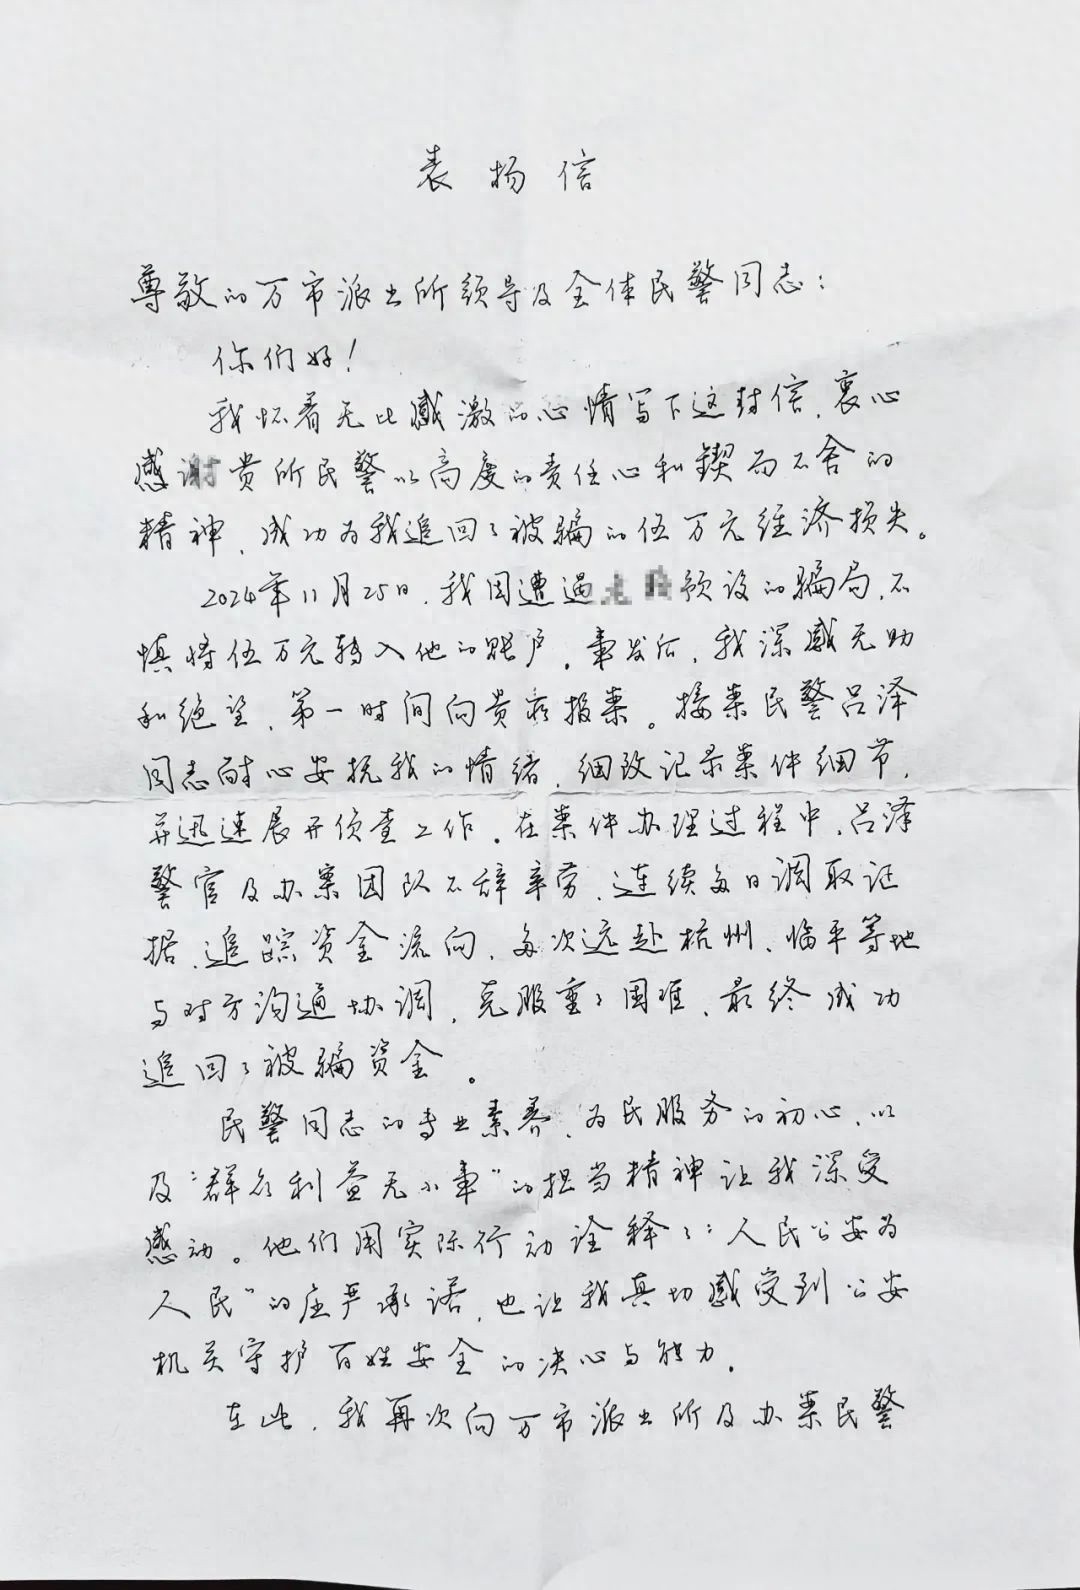 表扬信
尊敬的万市派出所领导及全体民警同志：
你们好！
我怀着无比感激的心情写下这封信，衷心
感谢贵所民警以高度的责任心和锲而不舍的
精神，成功为我追回了被骗的伍万元经济损失。
2024年11月25日，我因遭遇预设的骗局，不
慎将伍万元转入他的账户。事发后，我深感无助
和绝望，第一时间向贵所报案。接案民警吕泽
同志耐心安抚我的情绪，细致记录案件细节，
并迅速展开侦查工作。在案件办理过程中，吕泽
警官及办案团队不辞辛劳，连续多日调取证
据，追踪资金流向，多次远赴杭州、临平等地
与对方沟通协调，克服重重困难，最终成功
追回了被骗资金。
民警同志的专业素养、为民服务的初心，以
及“群众利益无小事”的担当精神让我深受
感动。他们用实际行动诠释了“人民公安为
人民”的庄严承诺，也让我真切感受到公安
机关守护百姓安全的决心与能力。
在此，我再次向万市派出所及办案民警